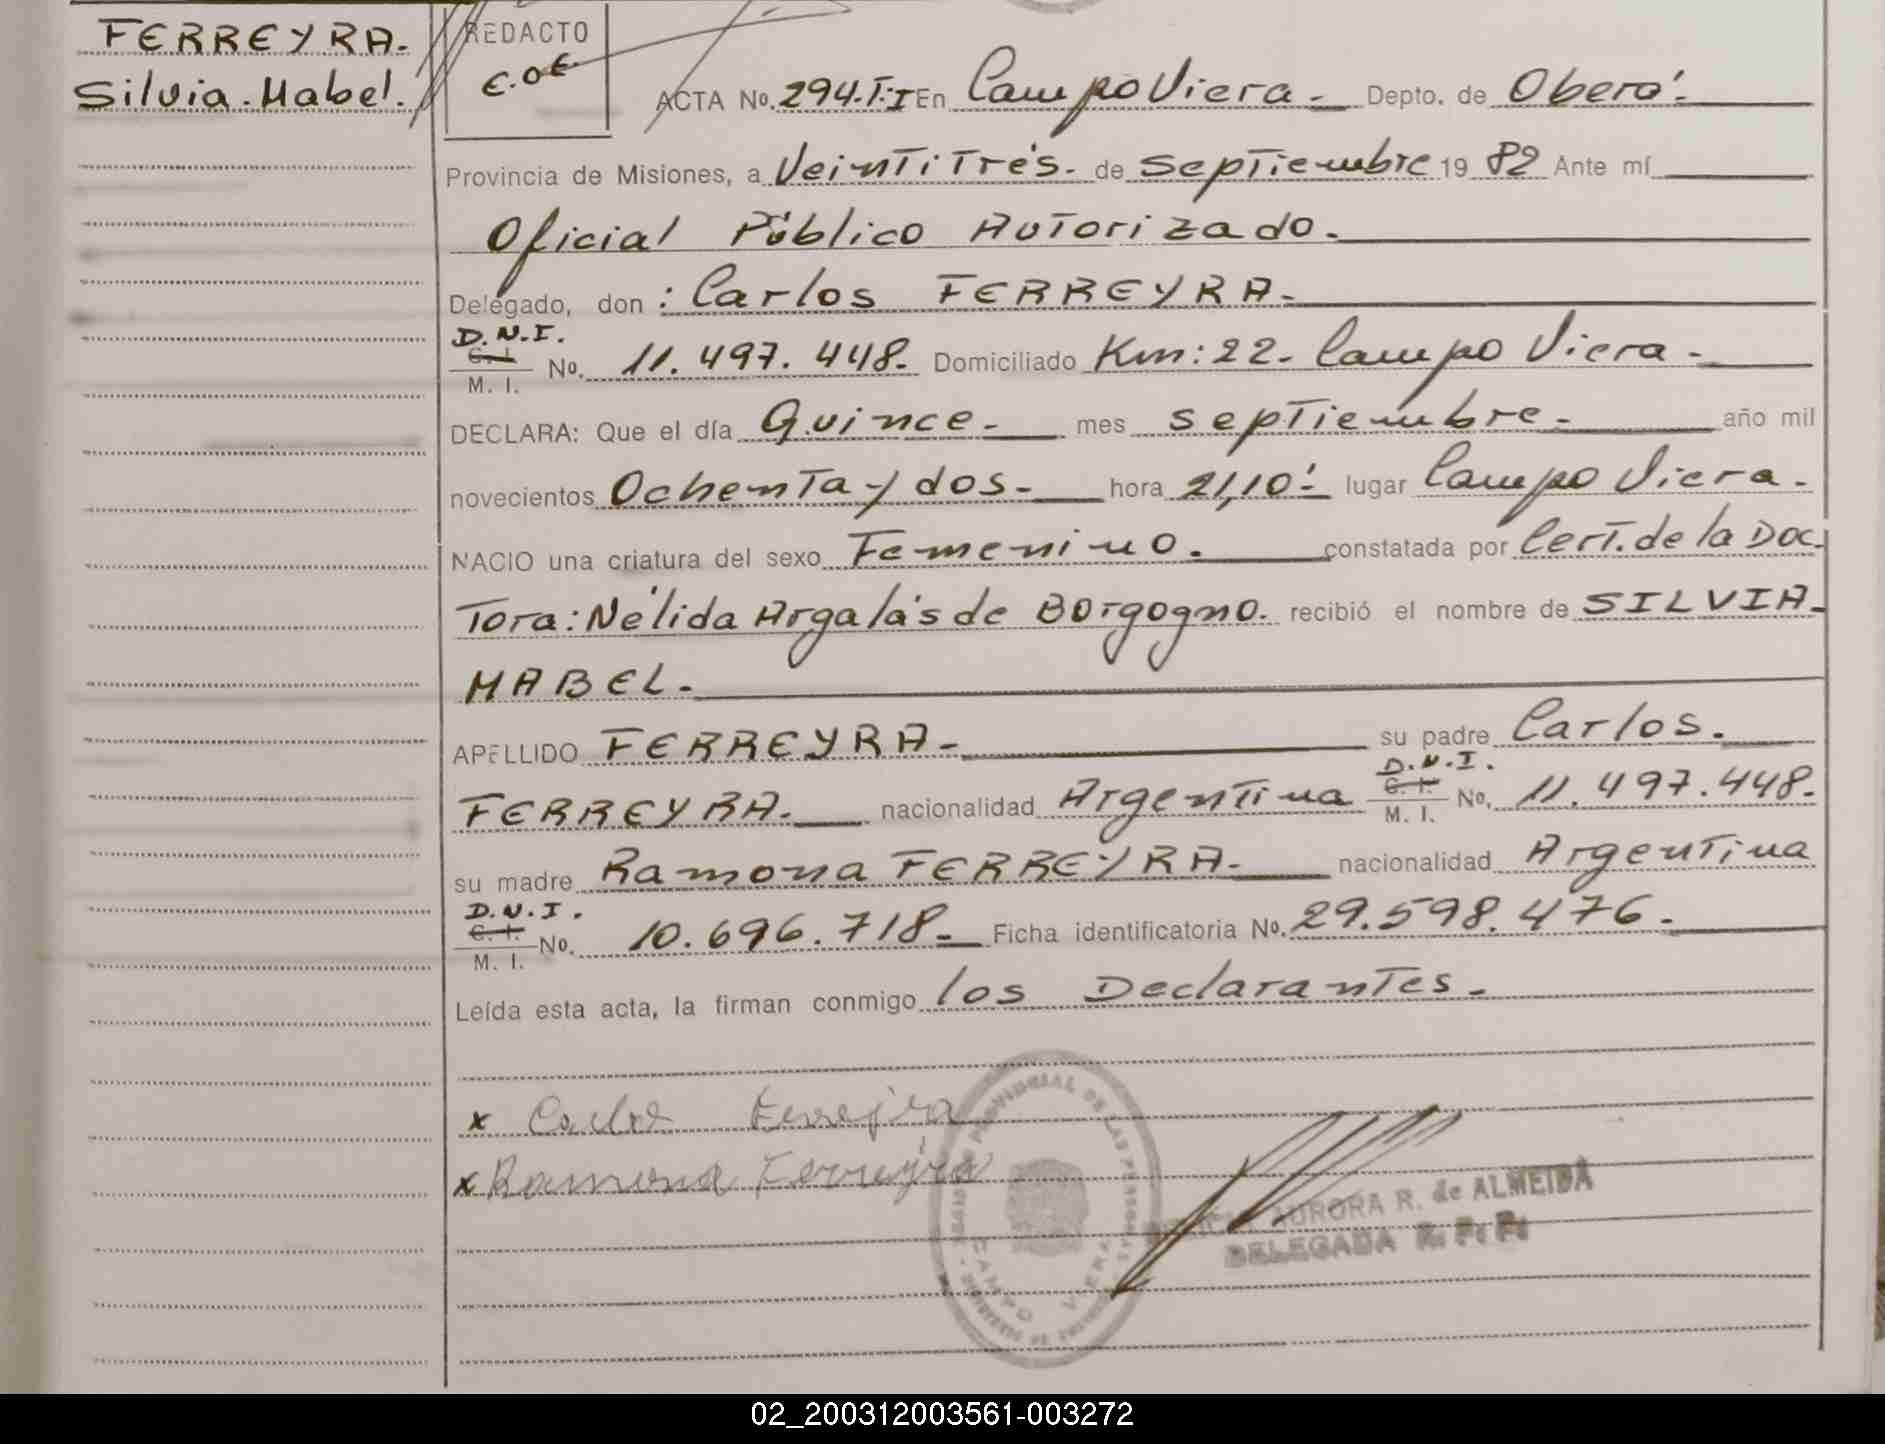 FERREYRA.
Silvia.Mabel.
REDACTO
E.OE.
ACTA No. 294.T:I En Campo Viera.- Depto. de Oberá.
Provincia de Misiones, a Veintitrés.- de Septiembre 19 82 Ante mí
Oficial Público Autorizado.
Delegado, don : Carlos FERREYRA.
D.N.I.
C. I.
M. I.
No. 11.497.448.- Domiciliado Km: 22- Campo Viera.-
DECLARA: Que el día Quince.- mes septiembre.- año mil
novecientos Ochenta y dos.- hora 21,10'.- lugar Campo Viera.
NACIO una criatura del sexo Femenino. constatada por Cert. de la Doc
tora: Nélida Argalás de Borgogno. recibió el nombre de SILVIA
MABEL.-
APELLIDO FERREYRA.- su padre Carlos.
FERREYRA. nacionalidad Argentina D.N.I. C. I. M. I. No. 11.497.448.
su madre Ramona FERREYRA.- nacionalidad Argentina
D.N.I.
C. I.
M. I.
No. 10.696.718.- Ficha identificatoria No. 29.598.476.-
Leída esta acta, la firman conmigo los Declarantes.-
x Carlos Ferreyra
x Ramona Ferreyra
PROVINCIAL DE LAS PERSONAS
CAMPO VIERA
AURORA R. de ALMEIDA
DELEGADA R. P. P.
02_200312003561-003272